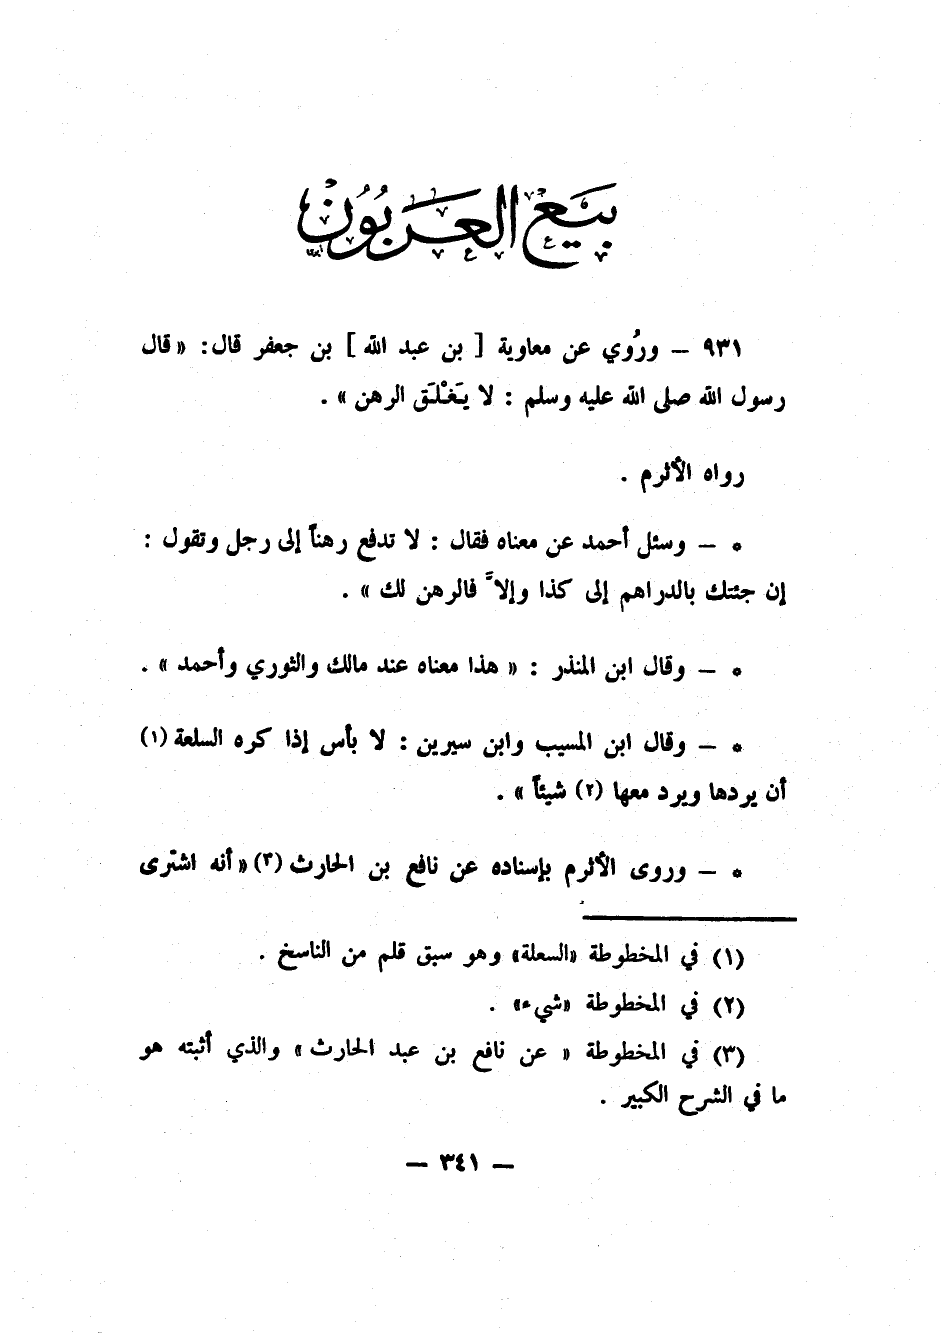 بَيْع العَربُون
٩٣١ – ورُوي عن معاوية [ بن عبد الله ] بن جعفر قال: « قال
رسول الله صلى الله عليه وسلم : لا يَغْلَق الرهن » .
رواه الأثرم .
* – وسئل أحمد عن معناه فقال : لا تدفع رهناً إلى رجل وتقول :
إن جئتك بالدراهم إلى كذا وإلاَّ فالرهن لك » .
* – وقال ابن المنذر : « هذا معناه عند مالك والثوري وأحمد » .
* – وقال ابن المسيب وابن سيرين : لا بأس إذا كره السلعة (١)
أن يردها ويرد معها (٢) شيئاً » .
* – وروى الأثرم بإسناده عن نافع بن الحارث (٣) « أنه اشترى
(١) في المخطوطة «السعلة» وهو سبق قلم من الناسخ .
(٢) في المخطوطة «شيء» .
(٣) في المخطوطة « عن نافع بن عبد الحارث » والذي أثبته هو
ما في الشرح الكبير .
– ٣٤١ –